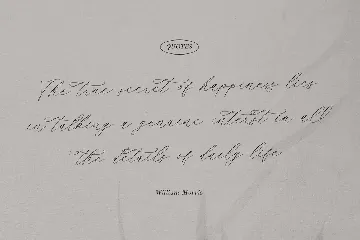 QUOTES
The true secret of happiness lies
in talking a genuine interest in all
the details of daily life
William Morris